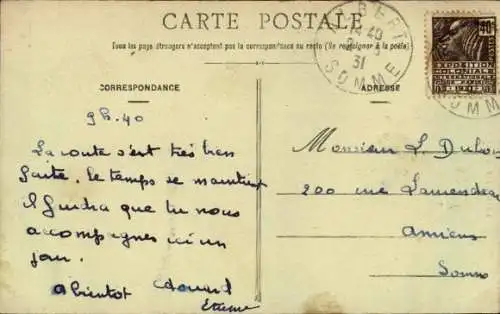 CARTE POSTALE
Tous les pays étrangers n'acceptent pas la correspondance au recto (Se renseigner à la poste)
CORRESPONDANCE
ADRESSE
14 40
31
SOMME
40
EXPOSITION
COLONIALE
INTERNATIONALE
9h.40
La route s'est très bien
faite. le temps se maintient
il faudra que tu nous
accompagnes ici un
jour.
a bientot Edouard
Etienne
Monsieur L. Dubois
200 rue
Amiens
Somme